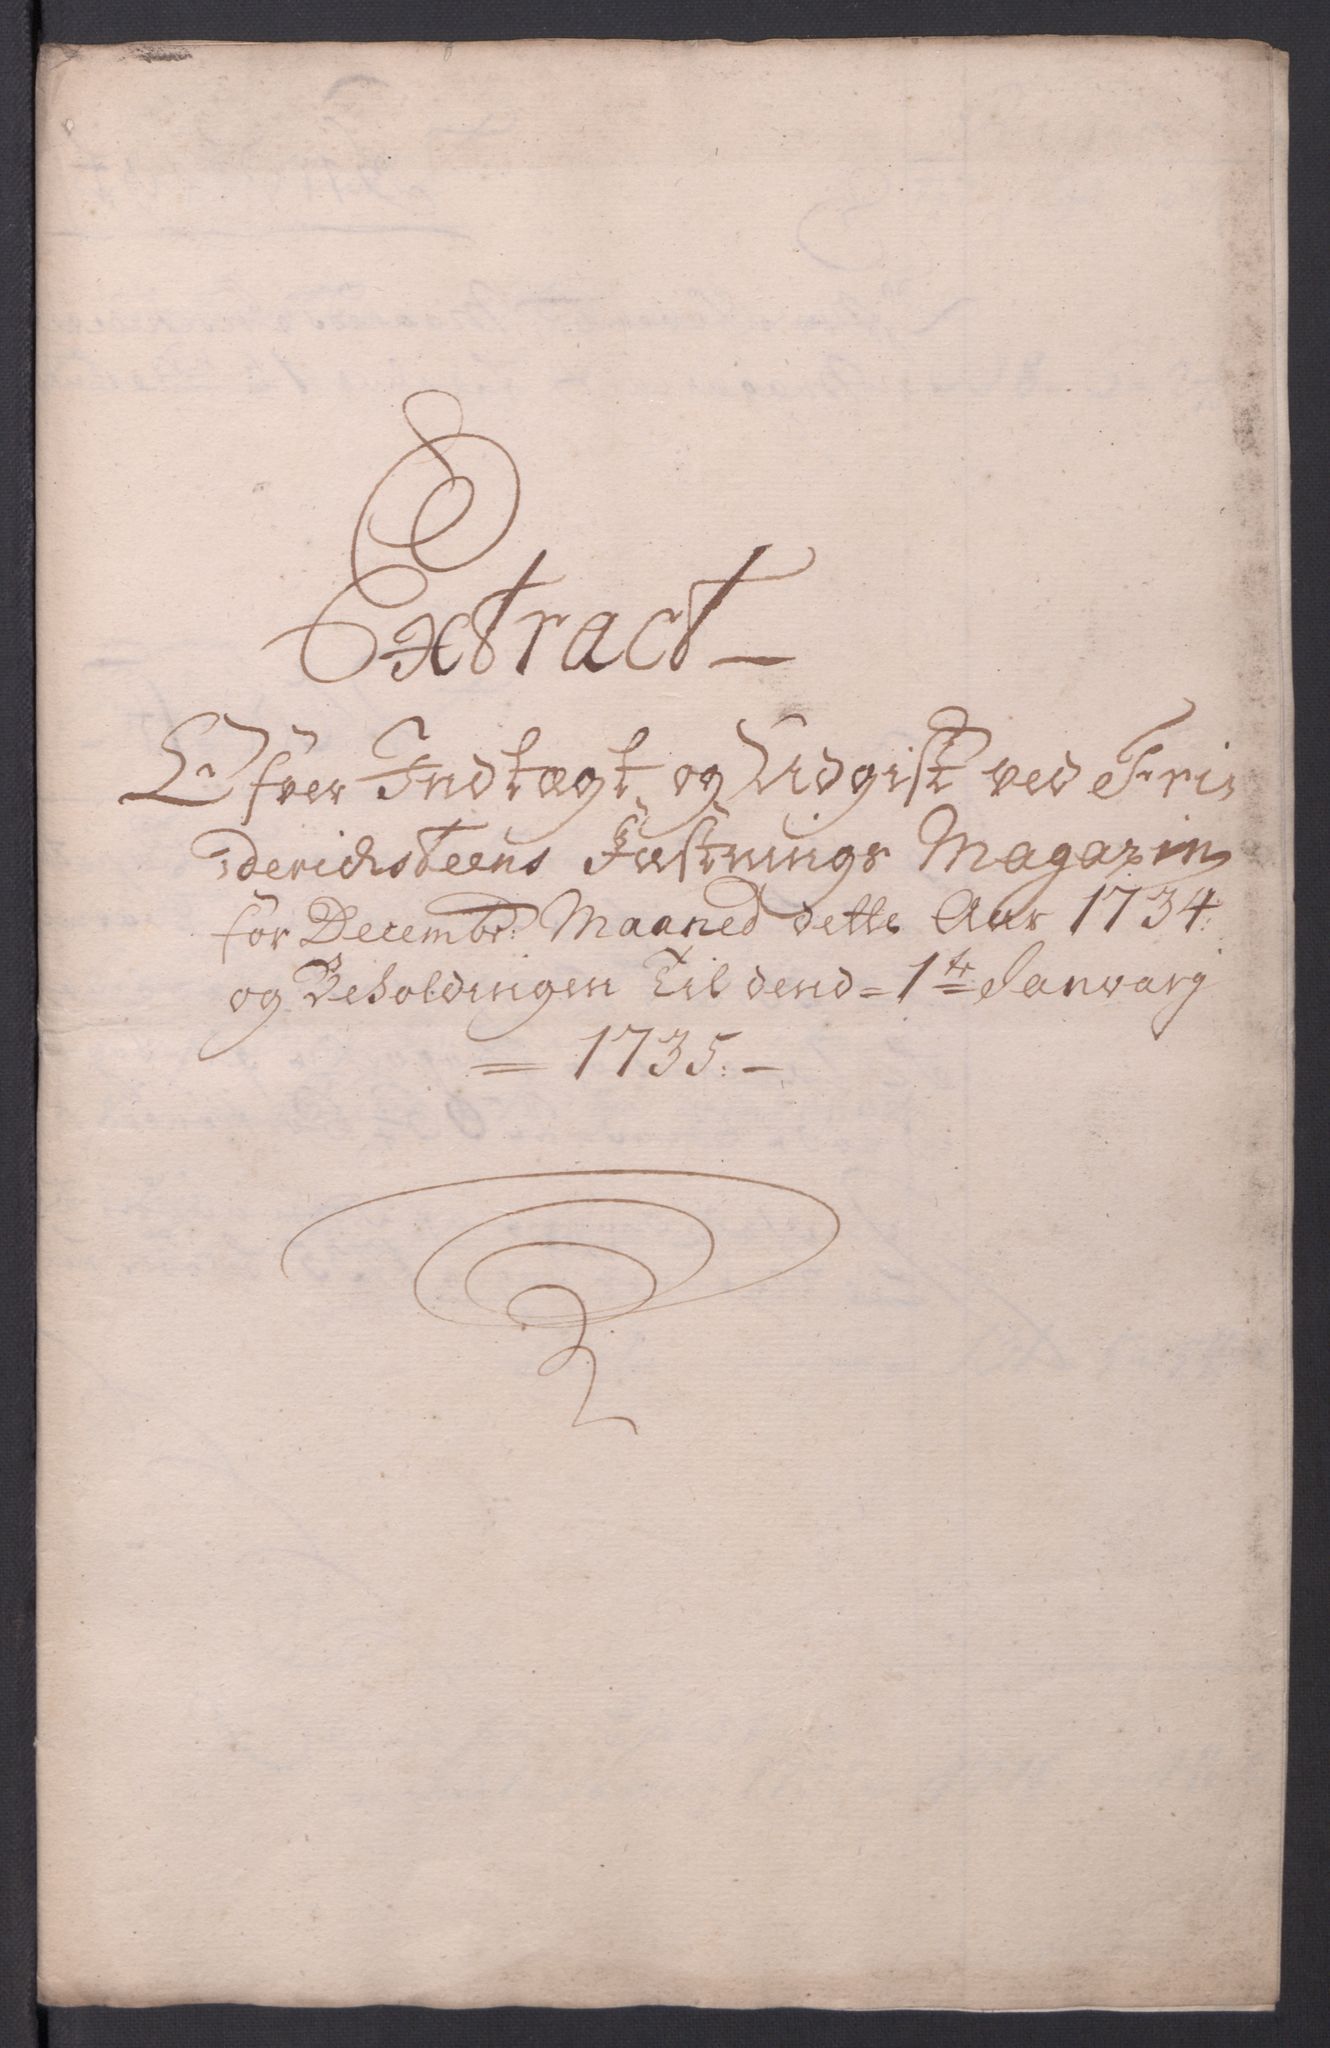 Extract
Ofver Indtægt og Udgift ved Fri,
dericksteens Fæstnings Magazin
for Decembr: Maaned dette Aar 1734.
og Beholdingen Til dend = 1te Januarj
= 1735. -